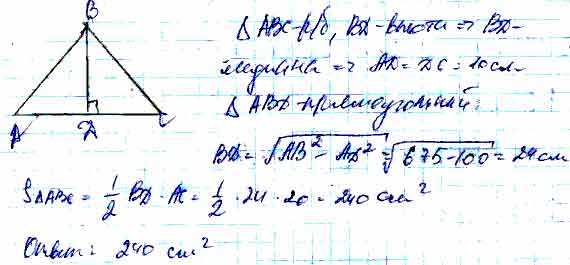 B
A D C
Δ ABC - р/б, BD - высота => BD -
медиана => AD = DC = 10 см.
Δ ABD - прямоугольный.
BD = √AB² - AD² = √675-100 = 24 см
SΔABC = 1/2 BD · AC = 1/2 · 24 · 20 = 240 см²
Ответ: 240 см²